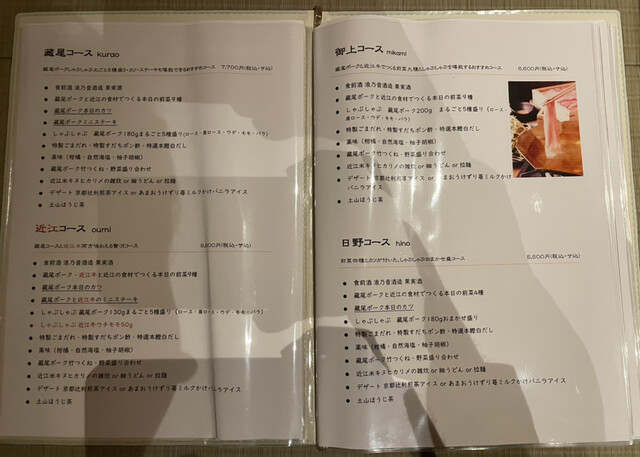 蔵尾コース kurao
蔵尾ポークしゃぶしゃぶ丸ごと5種盛り、カツ・ステーキも堪能できるおすすめコース 7,700円(税込・サ込)
食前酒 浪乃音酒造 果実酒
蔵尾ポークと近江の食材でつくる本日の前菜9種
蔵尾ポーク本日のカツ
蔵尾ポークミニステーキ
しゃぶしゃぶ 蔵尾ポーク180gまるごと5種盛り(ロース・肩ロース・ウデ・モモ・バラ)
特製ごまだれ・特製すだちポン酢・特選本鰹白だし
薬味(柑橘・自然海塩・柚子胡椒)
蔵尾ポーク竹つくね・野菜盛り合わせ
近江米キヌヒカリメの雑炊 or 細うどん or 拉麺
デザート 京都辻利煎茶アイス or あまおうけずり苺ミルクかけバニラアイス
土山ほうじ茶
近江コース oumi
蔵尾コースと近江牛両方味わえる贅沢コース 8,800円(税込・サ込)
食前酒 浪乃音酒造 果実酒
蔵尾ポーク・近江牛と近江の食材でつくる本日の前菜9種
蔵尾ポーク本日のカツ
蔵尾ポークと近江牛のミニステーキ
しゃぶしゃぶ 蔵尾ポーク130gまるごと5種盛り(ロース・肩ロース・ウデ・モモ・バラ)
しゃぶしゃぶ 近江牛ウチモモ50g
特製ごまだれ・特製すだちポン酢・特選本鰹白だし
薬味(柑橘・自然海塩・柚子胡椒)
蔵尾ポーク竹つくね・野菜盛り合わせ
近江米キヌヒカリメの雑炊 or 細うどん or 拉麺
デザート 京都辻利煎茶アイス or あまおうけずり苺ミルクかけバニラアイス
土山ほうじ茶
御上コース mikami
蔵尾ポークと近江牛でつくる前菜九種としゃぶしゃぶを堪能するおすすめコース 6,600円(税込・サ込)
食前酒 浪乃音酒造 果実酒
蔵尾ポークと近江の食材でつくる本日の前菜9種
しゃぶしゃぶ 蔵尾ポーク200g まるごと5種盛り(ロース・
肩ロース・ウデ・モモ・バラ)
特製ごまだれ・特製すだちポン酢・特選本鰹白だし
薬味(柑橘・自然海塩・柚子胡椒)
蔵尾ポーク竹つくね・野菜盛り合わせ
近江米キヌヒカリメの雑炊 or 細うどん or 拉麺
デザート 京都辻利煎茶アイス or あまおうけずり苺ミルクかけ
バニラアイス
土山ほうじ茶
日野コース hino
前菜四種とカツが付いた、しゃぶしゃぶおまかせ盛コース 5,500円(税込・サ込)
食前酒 浪乃音酒造 果実酒
蔵尾ポークと近江の食材でつくる本日の前菜4種
蔵尾ポーク本日のカツ
しゃぶしゃぶ 蔵尾ポーク180gおまかせ盛り
特製ごまだれ・特製すだちポン酢・特選本鰹白だし
薬味(柑橘・自然海塩・柚子胡椒)
蔵尾ポーク竹つくね・野菜盛り合わせ
近江米キヌヒカリメの雑炊 or 細うどん or 拉麺
デザート 京都辻利煎茶アイス or あまおうけずり苺ミルクかけバニラアイス
土山ほうじ茶